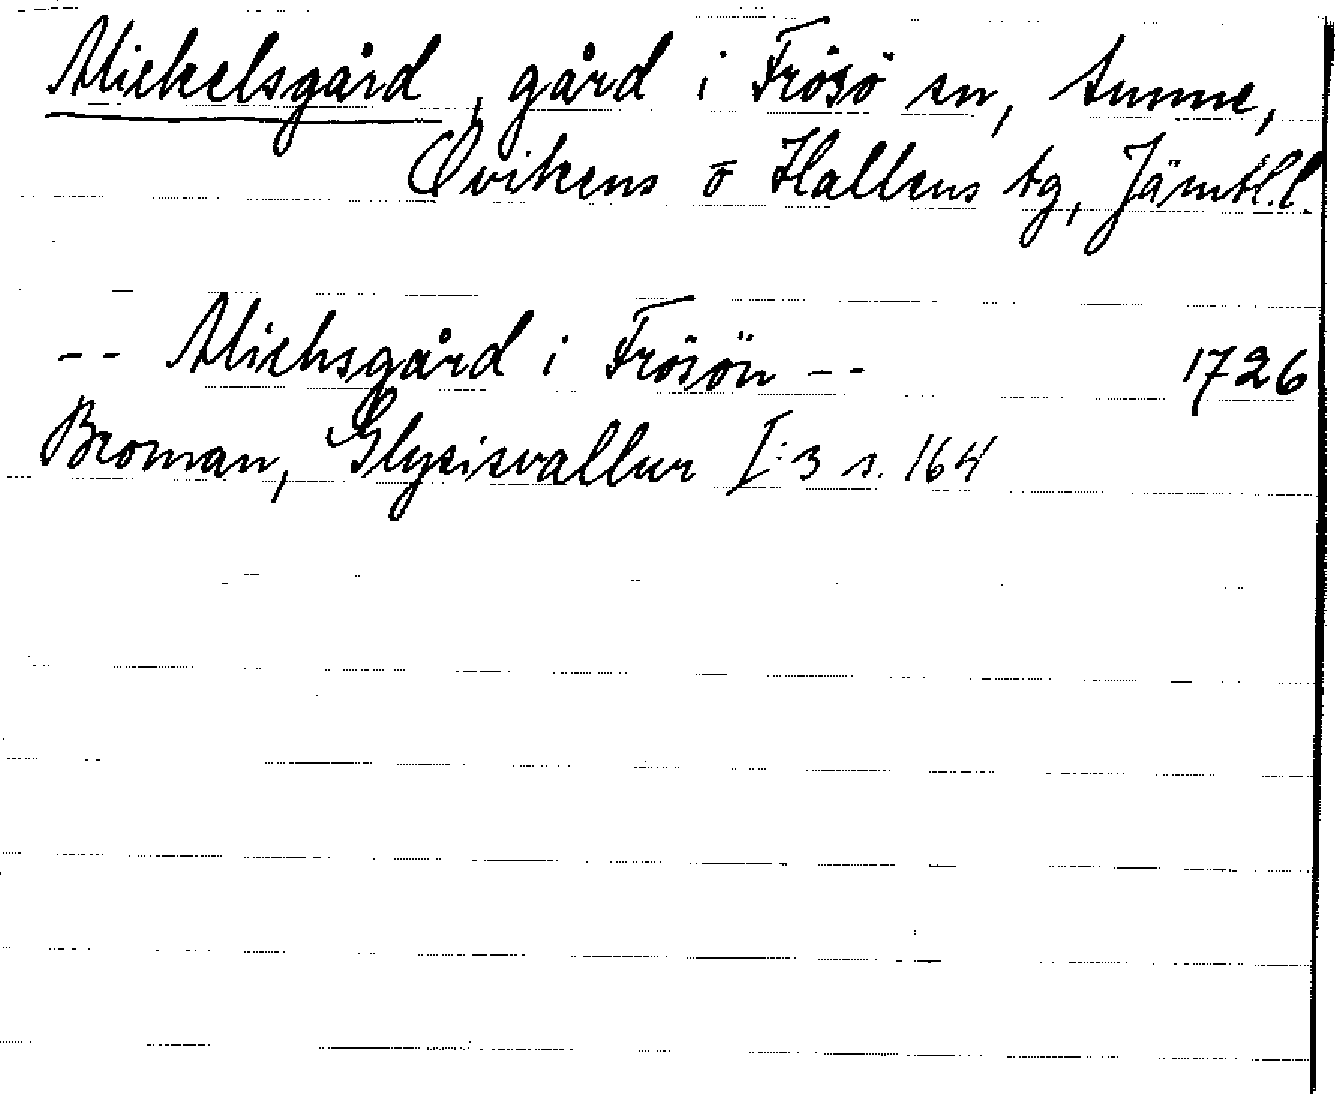 Mickelsgård, gård i Frösö sn, Sunne,
Ovikens o Hallens tg, Jämtl.l.
-- Michsgård i Frösön -- 1726
Broman, Glysisvallur I:3 s. 164